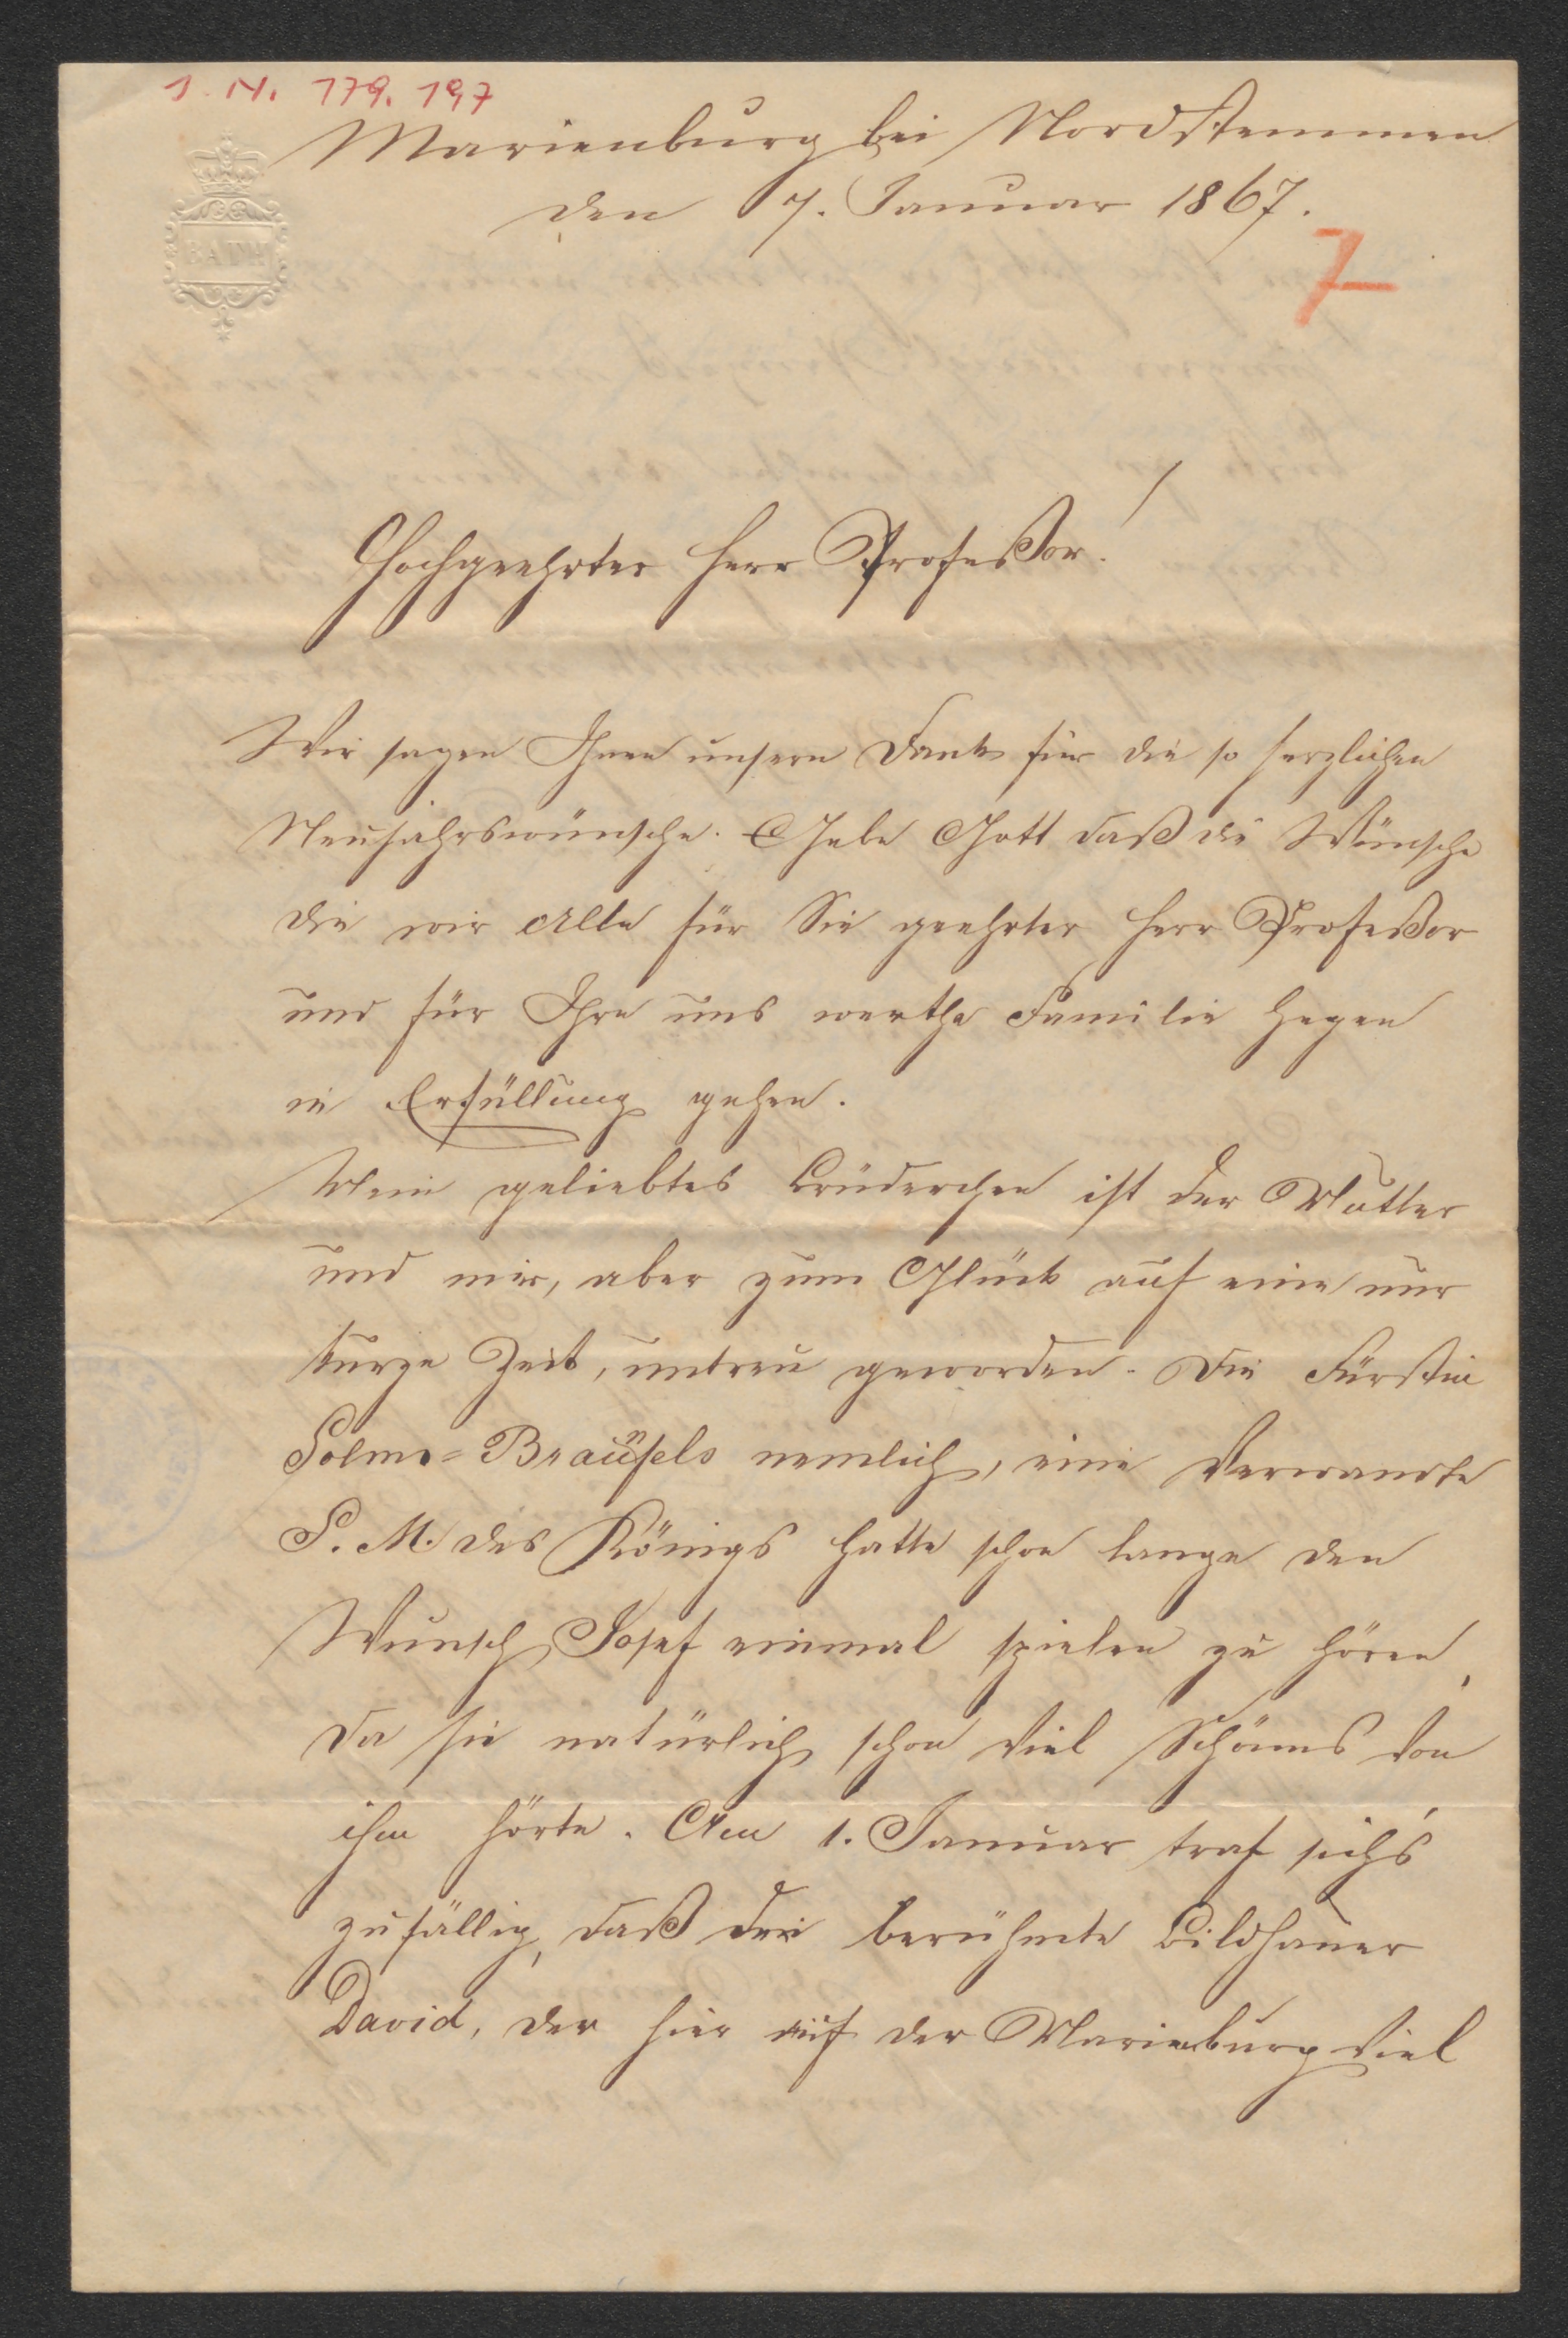 I. N. 179.197
Marienburg bei Nordstemmen
den 7. Januar 1867.
7
BATH
Hochgeehrter Herr Profeßor!
Wir sagen Ihnen unsern Dank für die so herzlichen
Neujahrswünsche. Gebe Gott daß die Wünsche
die wir Alle für Sie geehrter Herr Profeßor
und für Ihre uns werthe Familie hegen
in Erfüllung gehen.
Mein geliebtes Brüderchen ist der Mutter
und mir, aber zum Glück auf eine nur
kurze Zeit, untreu geworden. Die Fürstin
Solms=Braunfels nemlich, eine Verwandte
S. M. des Königs hatte schon lange den
Wunsch Josef einmal spielen zu hören,
da sie natürlich schon viel Schönes von
ihm hörte. Am 1. Januar traf sich's
zufällig, daß der berühmte Bildhauer
David, der hier auf der Marienburg viel